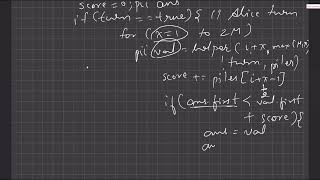 score = 0; pii ans
if (turn == true) { // Alice turn
for (x=1 to 2M)
pii val = helper (i+x, max(M,x)
!turn, piles)
score += piles[i+x-1]
if (ans.first < val.first
+ score) {
ans = val
an